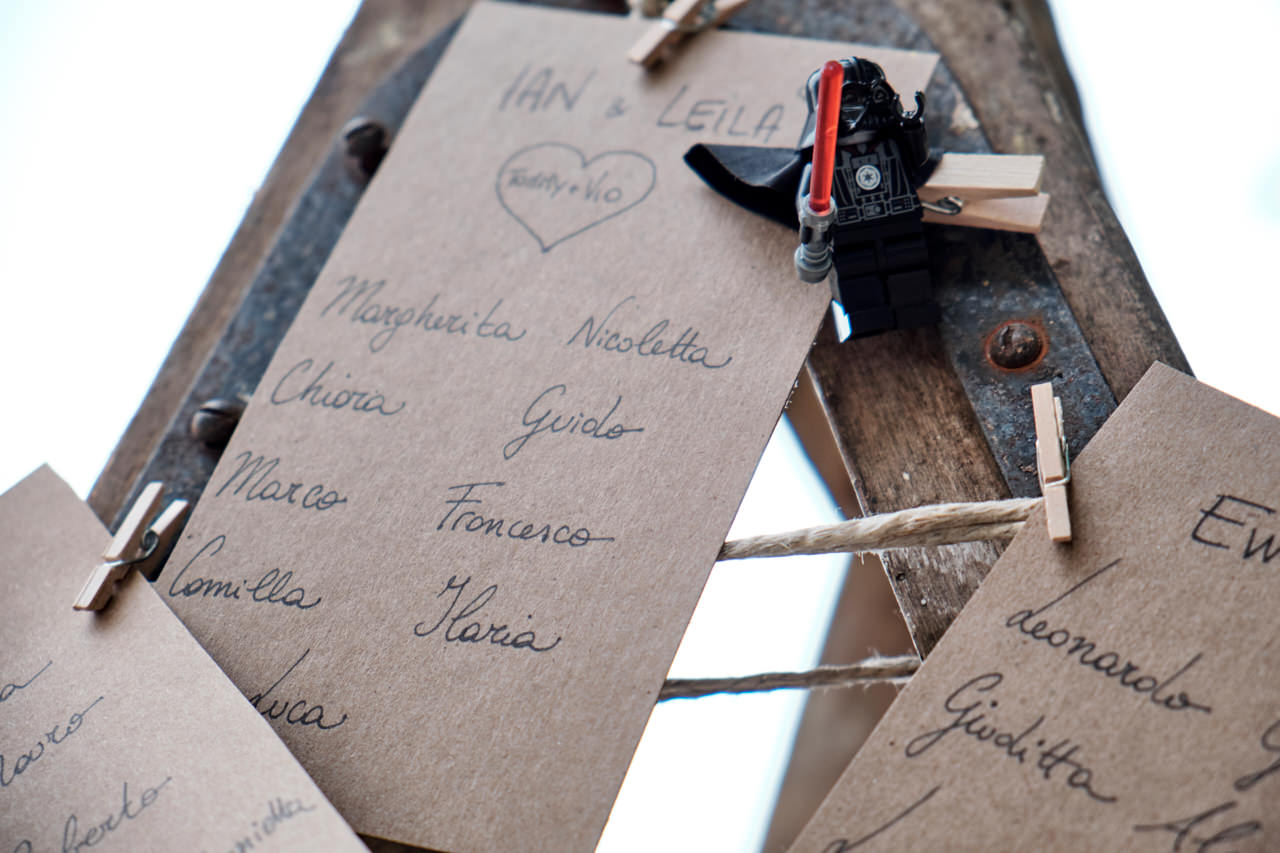 IAN & LEILA
Teddy + Vio
Margherita Nicoletta
Chiara Guido
Marco Francesco
Camilla Ilaria
Luca
Leonardo
Giuditta